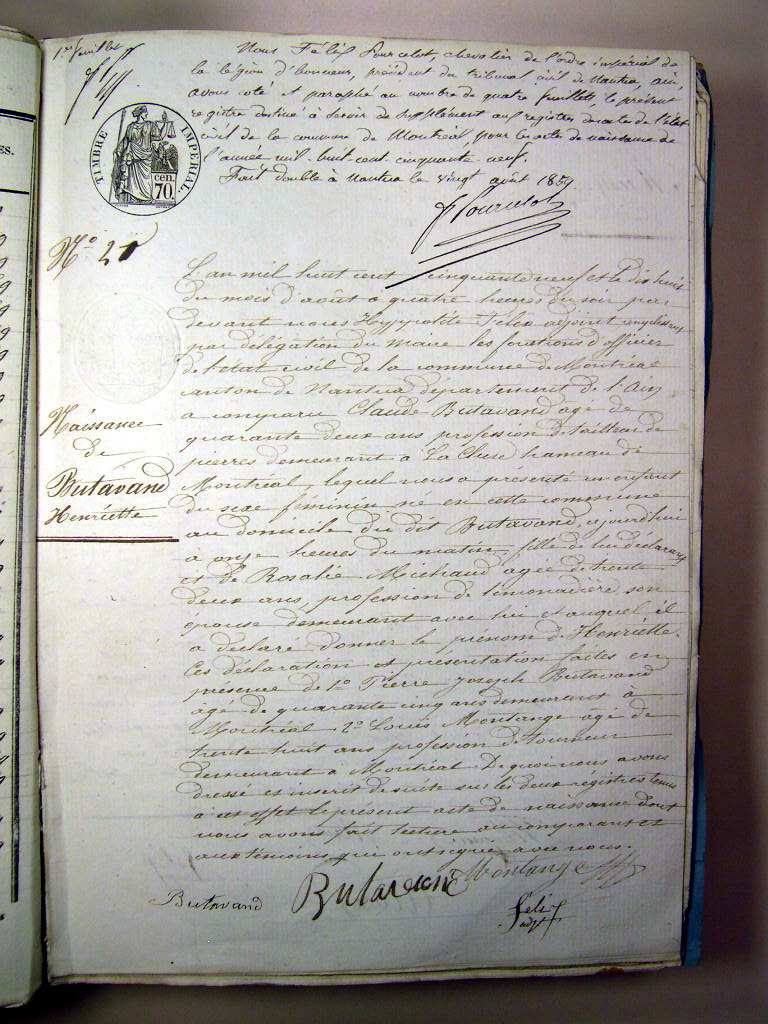 1er feuillet
Nous Félix Pourcelot, chevalier de l'ordre impérial de
la légion d'honneur, président du tribunal civil de Nantua, Ain,
avons coté et paraphé au nombre de quatre feuillets, le présent
registre destiné à servir de supplément aux registres de l'état
civil de la commune de Montréal, pour les actes de naissance de
l'année mil huit cent cinquante neuf.
Fait double à Nantua le vingt août 1859
Pourcelot
TIMBRE IMPÉRIAL
70 cen.
N° 21
L'an mil huit cent cinquante neuf et le dix huit
du mois d'août à quatre heures du soir par
devant nous Hyppolite Félix adjoint remplissant
par délégation du maire les fonctions d'officier
de l'état civil de la commune de Montréal
canton de Nantua département de l'Ain
a comparu Claude Butavand âgé de
quarante deux ans profession de tailleur de
pierres demeurant à La Cluse hameau de
Montréal, lequel nous a présenté un enfant
du sexe féminin né en cette commune
au domicile du dit Butavand, aujourd'hui
à onze heures du matin, fille de lui déclarant
et de Rosalie Michaud âgée de trente
deux ans, profession de limonadière son
épouse demeurant avec lui et auquel il
a déclaré donner le prénom de Henriette.
Ces déclaration et présentation faites en
présence de 1° Pierre Joseph Butavand
âgé de quarante cinq ans demeurant à
Montréal 2° Louis Montange âgé de
trente huit ans profession de tourneur
demeurant à Montréal De quoi nous avons
dressé et inscrit de suite sur les deux régistres tenus
à cet effet le présent acte de naissance dont
nous avons fait lecture au comparant et
aux témoins qui ont signé avec nous.
Naissance
de
Butavand
Henriette
Butavand Butavand Montange
Félix
adjt